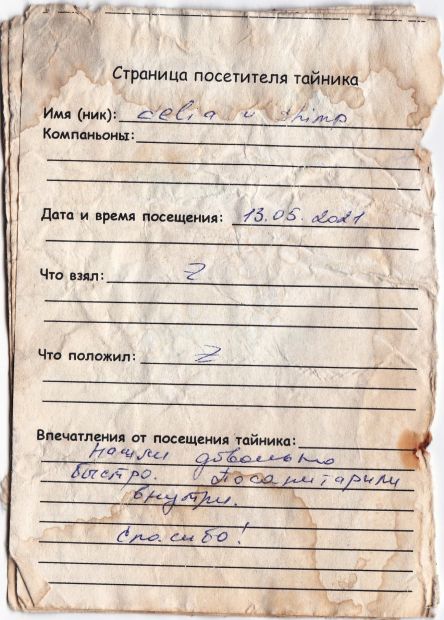 Страница посетителя тайника
Имя (ник): celia и shimp
Компаньоны:
Дата и время посещения: 13.05.2021
Что взял: Z
Что положил: Z
Впечатления от посещения тайника:
Нашли довольно
быстро. Посанитарили
внутри.
Спасибо!